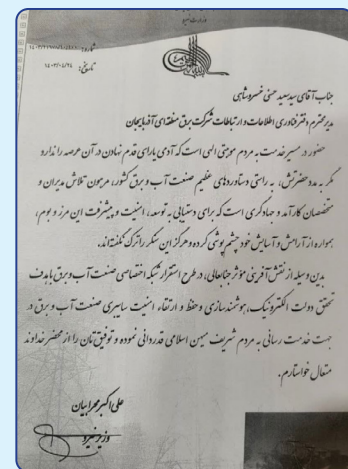 وزارت نیرو
شماره: 
تاریخ: ۱۴۰۳/۰۴/۲۴
جناب آقای سید سعید حسنی خسروشاهی
مدیر محترم دفتر فناوری اطلاعات و ارتباطات شرکت برق منطقه‌ای آذربایجان
حضور در مسیر خدمت به مردم موهبتی الهی است که آدمی یارای قدم نهادن در آن عرصه را ندارد
مگر به مدد حضرتش، به راستی دستاوردهای عظیم صنعت آب و برق کشور، مرهون تلاش مدیران و
متخصصان کارآمد و جهادگری است که برای دستیابی به توسعه، امنیت و پیشرفت این مرز و بوم،
همواره از آرامش و آسایش خود چشم پوشی کرده و هرگز این سنگر را ترک نگفته‌اند.
بدین وسیله از نقش آفرینی مؤثر جنابعالی، در طرح استقرار شبکه اختصاصی صنعت آب و برق با هدف
تحقق دولت الکترونیک، هوشمندسازی و حفظ و ارتقاء امنیت سایبری صنعت آب و برق در
جهت خدمت رسانی به مردم شریف میهن اسلامی قدردانی نموده و توفیق‌تان را از محضر خداوند
متعال خواستارم.
علی اکبر محرابیان
وزیر نیرو